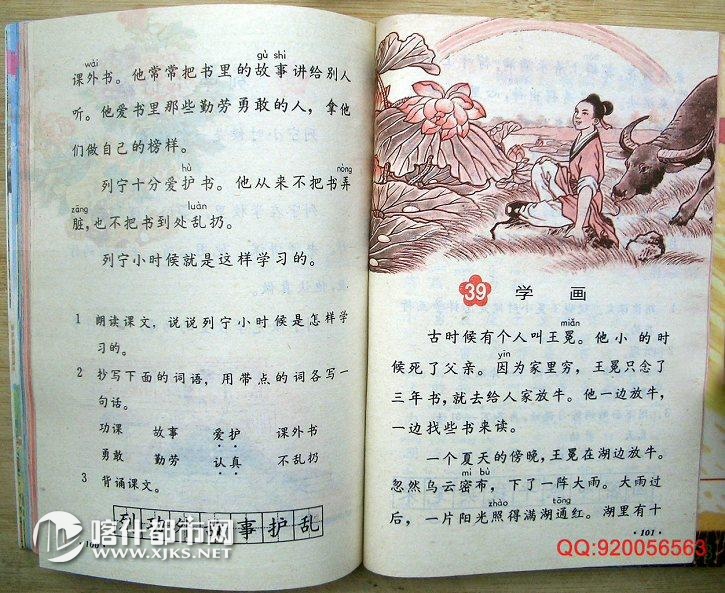 wài
gù shi
课外书。他常常把书里的故事讲给别人
听。他爱书里那些勤劳勇敢的人，拿他
们做自己的榜样。
hù
nòng
列宁十分爱护书。他从来不把书弄
zāng
luàn
脏，也不把书到处乱扔。
列宁小时候就是这样学习的。
1 朗读课文，说说列宁小时候是怎样学
习的。
2 抄写下面的词语，用带点的词各写一
句话。
功课 故事 爱护 课外书
勇敢 勤劳 认真 不乱扔
3 背诵课文。
列 功 事 护 乱
100
39 学 画
miǎn
古时候有个人叫王冕。他小的时
yīn
候死了父亲。因为家里穷，王冕只念了
三年书，就去给人家放牛。他一边放牛，
一边找些书来读。
一个夏天的傍晚，王冕在湖边放牛。
mì bù
忽然乌云密布，下了一阵大雨。大雨过
zhào
tōng
后，一片阳光照得满湖通红。湖里有十
·101·
喀什都市网
www.XJKS.NET
QQ:920056563